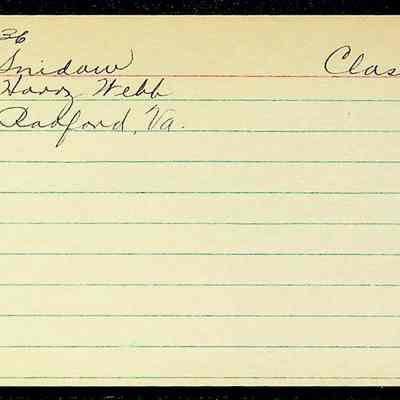 36
Snidow Clas
Harry Webb
Radford, Va.